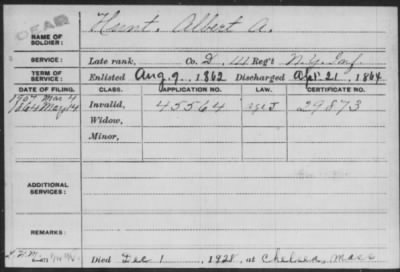 DEAD
NAME OF SOLDIER: Hunt, Albert A.
SERVICE: Late rank, Co. D, 111 Reg't N.Y. Inf.
TERM OF SERVICE: Enlisted Aug. 9, 1862 Discharged Apl 21, 1864
DATE OF FILING. CLASS. APPLICATION NO. LAW. CERTIFICATE NO.
1907 Mar 4
1864 May 14 Invalid, 45564 29873
Widow,
Minor,
ADDITIONAL SERVICES:
REMARKS:
Died Dec 1, 1928, at Chelsea, Mass